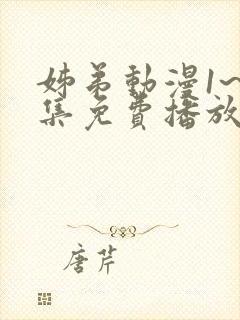 姊弟動漫1~
集免費播放
唐芹